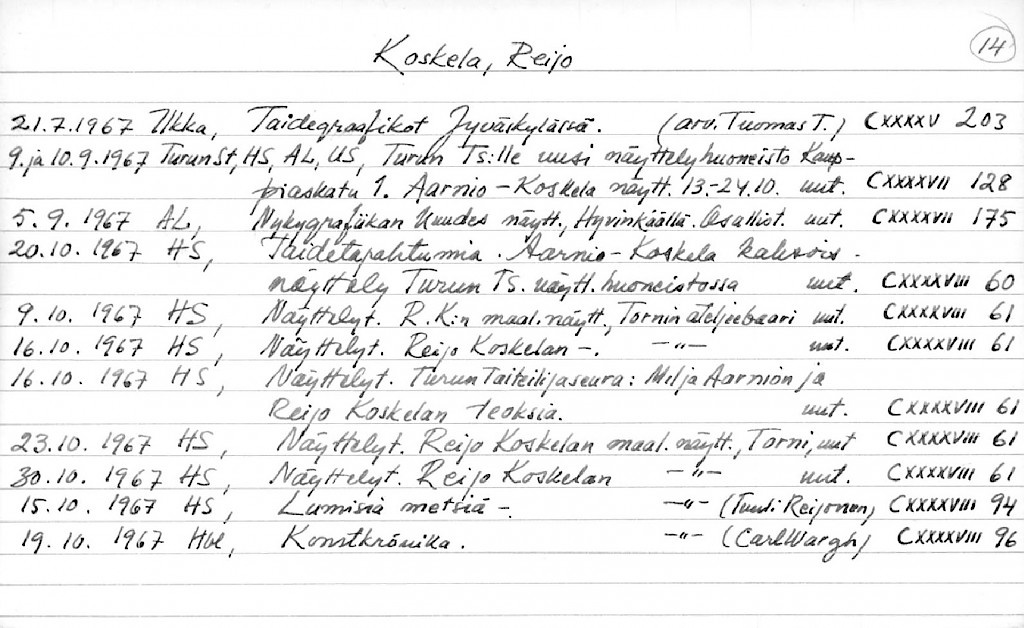 Koskela, Reijo
14
21.7.1967 Ilkka, Taidegraafikot Jyväskylässä. (arv. Tuomas T.) CXXXXV 203
9. ja 10.9.1967 TurunSt, HS, AL, US, Turun Ts:lle uusi näyttelyhuoneisto Kaup-
piaskatu 1. Aarnio – Koskela näytt. 13.–24.10. uut. CXXXXVII 128
5. 9. 1967 AL, Nykygrafiikan Kuudes näytt., Hyvinkäällä. Osallist. uut. CXXXXVII 175
20.10. 1967 HS, Taidetapahtumia. Aarnio – Koskela kaksois-
näyttely Turun Ts. näytt. huoneistossa uut. CXXXXVIII 60
9.10. 1967 HS, Näyttelyt. R.K:n maal. näytt., Tornin ateljeebaari uut. CXXXXVIII 61
16.10. 1967 HS, Näyttelyt. Reijo Koskelan –. –"– uut. CXXXXVIII 61
16.10. 1967 HS, Näyttelyt. Turun Taiteilijaseura: Milja Aarnion ja
Reijo Koskelan teoksia. uut. CXXXXVIII 61
23.10. 1967 HS, Näyttelyt. Reijo Koskelan maal. näytt., Torni, uut CXXXXVIII 61
30.10. 1967 HS, Näyttelyt. Reijo Koskelan –"– uut. CXXXXVIII 61
15.10. 1967 HS, Lumisia metsiä –. –"– (Tuuli Reijonen) CXXXXVIII 94
19.10. 1967 Hbl, Konstkrönika. –"– (Carl Wargh) CXXXXVIII 96